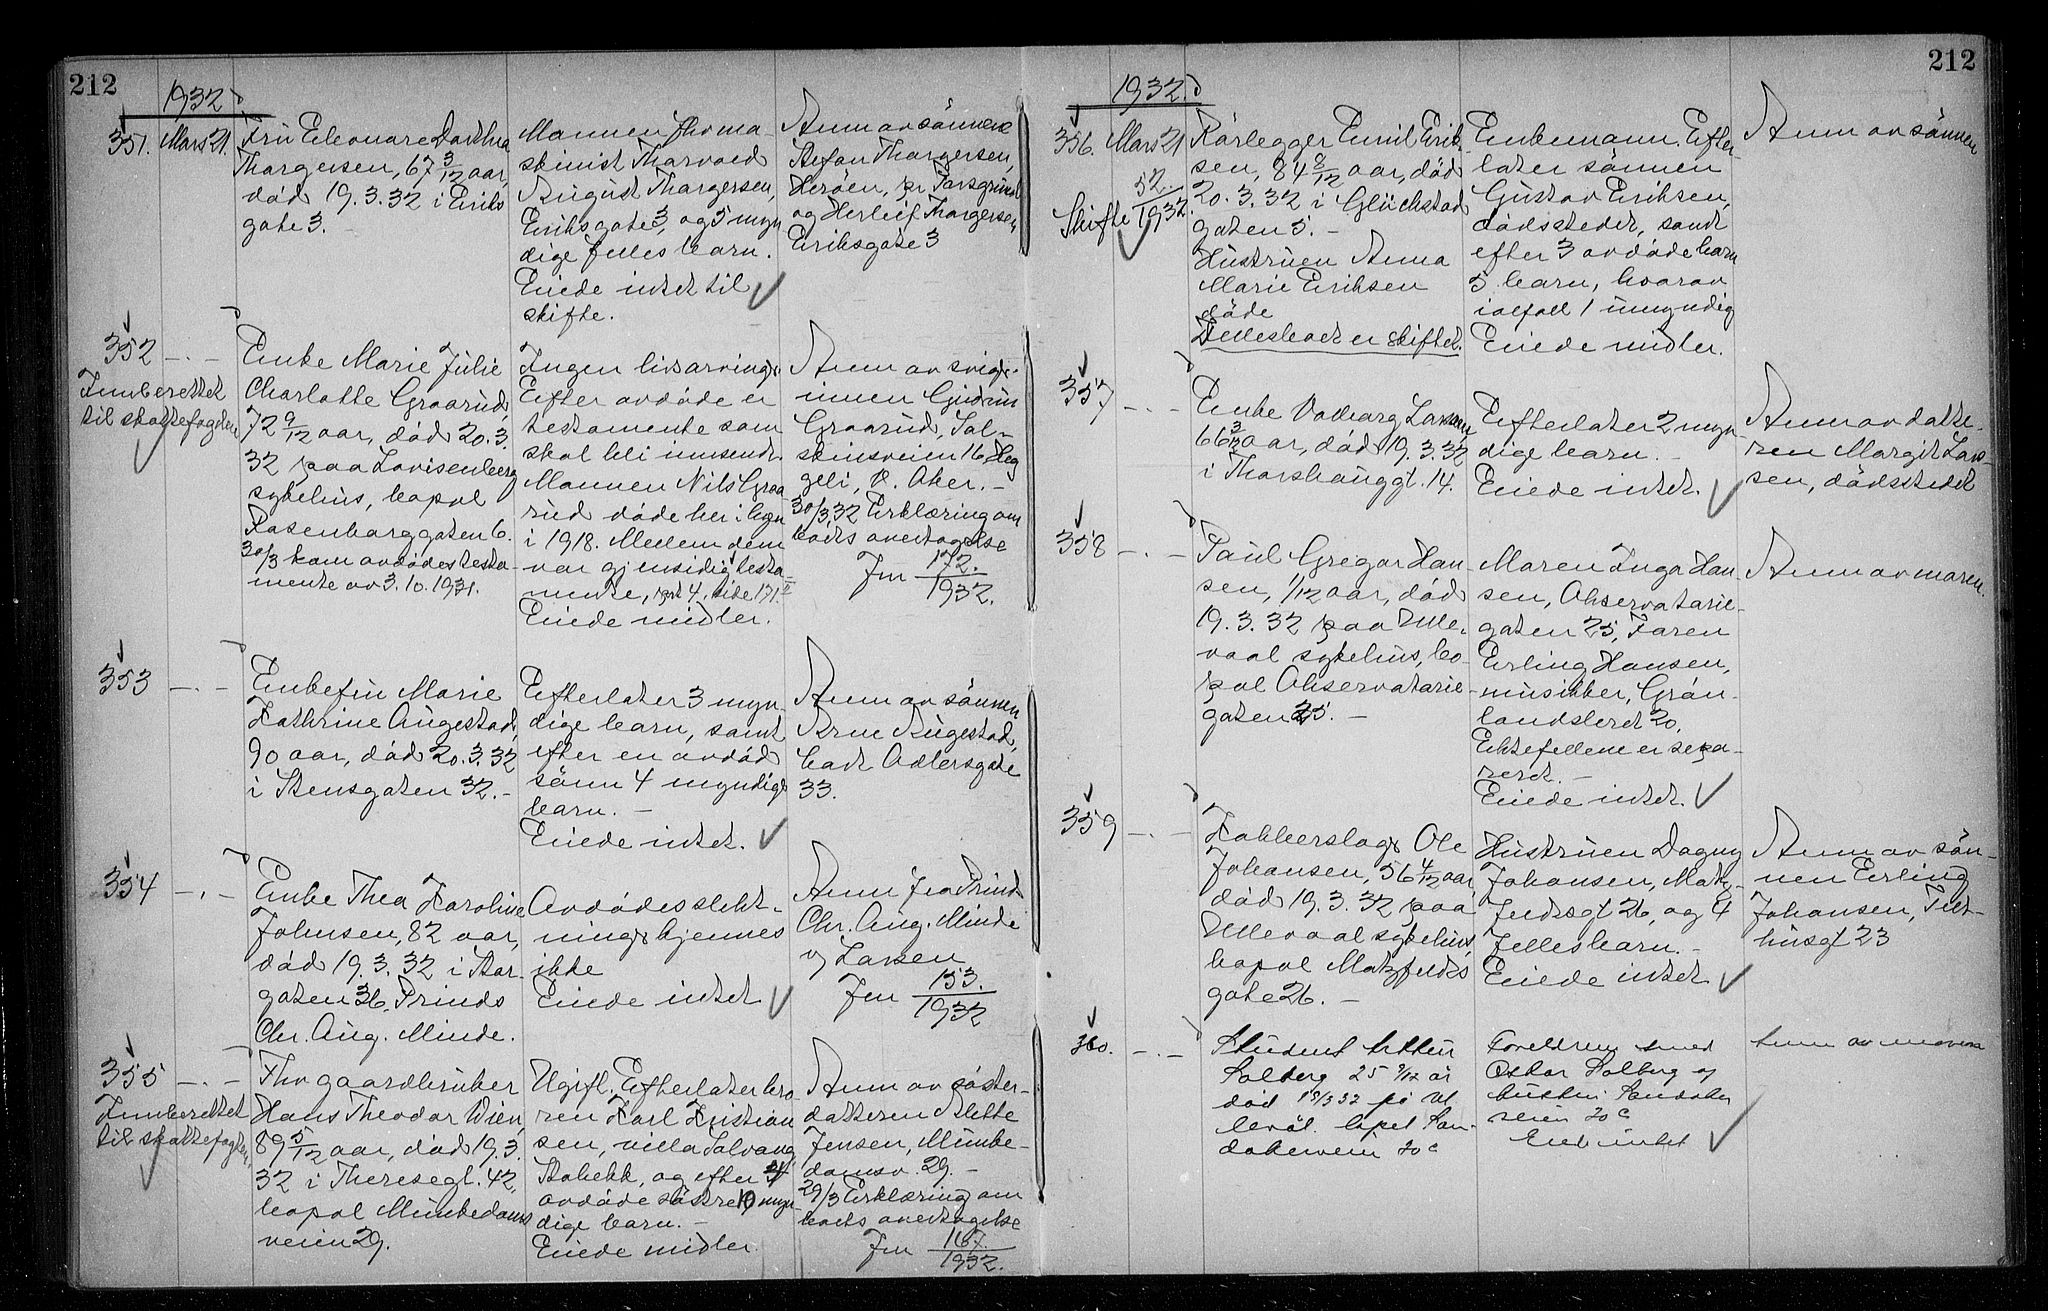 212
1932
351. Mars 21.
Fru Eleonore Dorthea
Thorgersen, 67 3/12 aar,
død 19.3.32 i Eriks
gate 3.
Mannen fhv ma-
skinist Thorvald
August Thorgersen,
Eriksgate 3, og 5 myn
dige felles barn.
Eiede intet til
skifte.
Anm av sønnene
Stefan Thorgersen,
Herøen, pr Porsgrund
og Herleif Thorgersen,
Eriksgate 3
352 -.-
Innberettet
til skattefogden
Enke Marie Julie
Charlotte Graarud,
72 9/12 aar, død 20.3.
32 paa Lovisenberg
sykehus, bopæl
Rosenborggaten 6.
30/3 kom avdødes testa-
mente av 3.10.1931.
Ingen livsarving.
Efter avdøde er
testamente som
skal bli innsendt.
Mannen Nils Graa
rud døde her i byen
i 1918. Mellem dem
var gjensidig testa-
mente, prot 4, side 171
Eiede midler.
Anm av svige-
innen Gudrun
Graarud,
16 Heg
geli, V. Aker. -
30/3.32 Erklæring om
boets overtagelse
Jnr 172./1932.
353 -.-
Enkefru Marie
Kathrine Augestad,
90 aar, død 20.3.32
i Stensgaten 32. -
Efterlater 3 myn-
dige barn, samt
efter en avdød
sønn 4 myndige
barn. -
Eiede intet.
Anm av sønnen
Arne Augestad,
Cort Adlersgate
33.
354 -.-
Enke Thea Karoline
Johnsen, 82 aar,
død 19.3.32 i Aar-
gaten 36, Prinds
Chr. Aug. Minde.
Avdødes slekt-
ninger kjennes
ikke
Eiede intet
Anm fra Prinds
Chr. Aug. Minde
v/ Larsen
Jnr 153./1932
355 -.-
Innberettet
til skattefogden.
Fhv gaardbruker
Hans Theodor Wien,
89 5/12 aar, død 19.3.
32 i Theresegt. 42,
bopæl Munkedams
veien 29.
Ugift. Efterlater bro
ren Karl Kristian
sen, villa Solvang,
Stabekk, og efter 4
avdøde søstre 10 myn
dige barn. -
Eiede midler.
Anm av søster-
datteren Alette
Jensen, Munke-
damsv. 29. -
29/3 Erklæring om
boets overtagelse
Jnr 167./1932.
212
1932.
356. Mars 21
Skifte 52./1932.
Rørlegger Emil Erik-
sen, 84 8/12 aar, død
20.3.32 i Glückstad
gaten 5. -
Hustruen Anna
Marie Eriksen
døde
Fellesboet er skiftet.
Enkemann. Efter-
later sønnen
Gustav Eriksen,
dødsstedet, samt
efter 3 avdøde barn
5 barn, hvorav
ialfall 1 umyndig
Eiede midler.
Anm av sønnen
357 -.-
Enke Valborg Larsen,
66 3/12 aar, død 19.3.32
i Thorshauggt. 14.
Efterlater 2 myn-
dige barn. -
Eiede intet.
Anm av datte-
ren Margit Lar-
sen, dødsstedet
358 -.-
Paul Gregor Han-
sen, 1/12 aar, død
19.3.32 paa Ulle-
vaal sykehus, bo-
pæl Observatorie-
gaten 25. -
Moren Inga Han-
sen, Observatorie-
gaten 25, Faren
Erling Hansen,
musikker, Grøn-
landsleret 20.
Ektefellene er sepa-
reret. -
Eiede intet.
Anm av moren.
359 -.-
Kobberslager Ole
Johansen, 56 4/12 aar,
død 19.3.32 paa
Ullevaal sykehus,
bopæl Motzfeldts
gate 26. -
Hustruen Dagny
Johansen, Motz-
feldtsgt 26, og 4
felles barn. -
Eiede intet
Anm av søn-
nen Erling
Johansen, Tøt-
husgt 23
360. -.-
Student Arthur
Solberg 25 9/12 år
død 18/3 32 på Ul
levål. bopel San-
dakerveien 70c
Foreldrene smed
Oskar Solberg og
hustru Sandaker
veien 70c
Eiet intet
Anm av moren